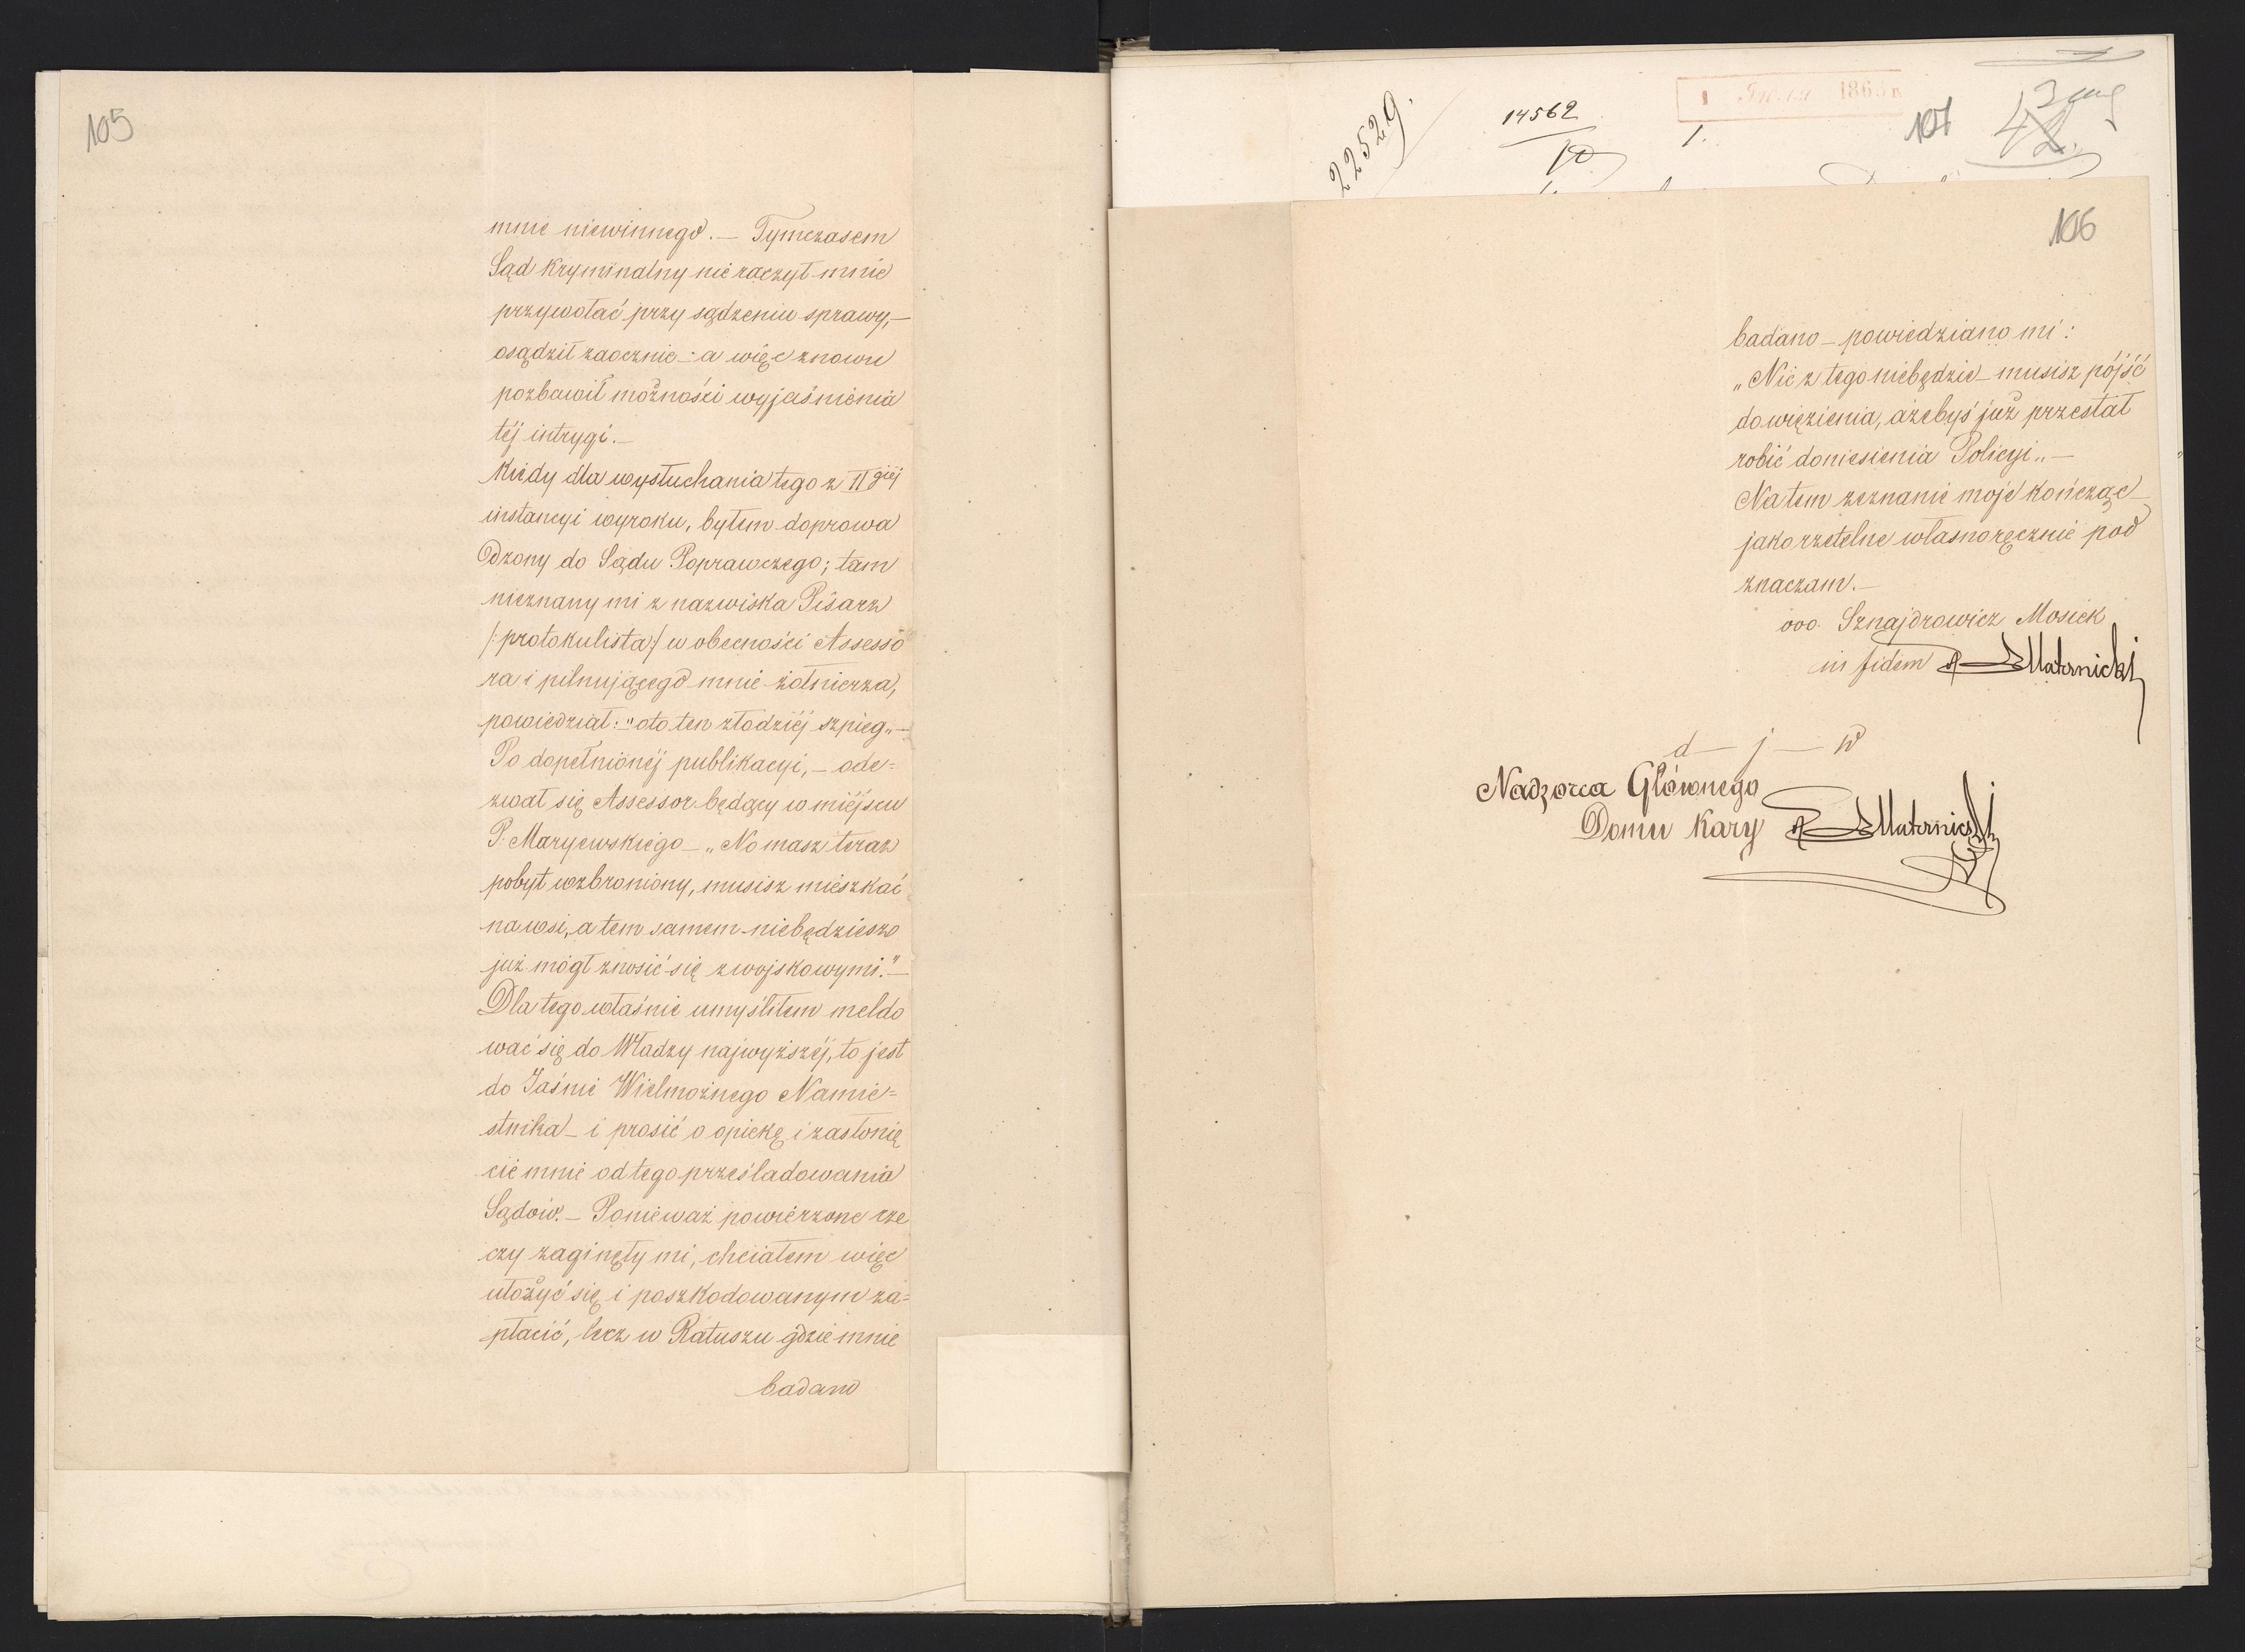 105
mnie niewinnego. — Tymczasem
Sąd Kryminalny nie raczył mnie
przywołać przy sądzeniu sprawy, —
osądził zaocznie — a więc znowu
pozbawił możności wyjaśnienia
téj intrygi. —
Kiedy dla wysłuchania tego z II giéj
instancyi wyroku, byłem doprowa
dzony do Sądu Poprawczego; tam
nieznany mi z nazwiska Pisarz
/: protokulista :/ w obecności Assesso
ra i pilnującego mnie żołnierza,
powiedział: „oto ten złodziéj szpieg„ —
Po dopełnionéj publikacyi, — ode=
zwał się Assessor będący w miéjscu
P. Maryewskiego — „No masz teraz
pobyt wzbroniony, musisz mieszkać
na wsi, a tem samem niebędziesz
już mógł znosić się z wojskowymi." —
Dla tego właśnie umyśliłem meldo
wać się do Władzy najwyższéj, to jest
do Jaśnie Wielmożnego Namie=
stnika — i prosić o opiekę i zasłonię
cie mnie od tego prześladowania
Sądów. — Ponieważ powierzone rze
czy zaginęły mi, chciałem więc
ułożyć się i poszkodowanym za=
płacić, lecz w Ratuszu gdzie mnie
badano
22529.
14562
10
1.
1
1865 r
107
42.
106
badano — powiedziano mi:
„Nic z tego niebędzie — musisz pójść
do więzienia, ażebyś już przestał
robić doniesienia Policyi„ —
Na tem zeznanie moje kończąc —
jako rzetelne własnoręcznie pod
znaczam. —
ooo Sznajdrowicz Mosiek
in fidem Maternicki
d — j — w
Nadzorca Głównego
Domu Kary Maternicki